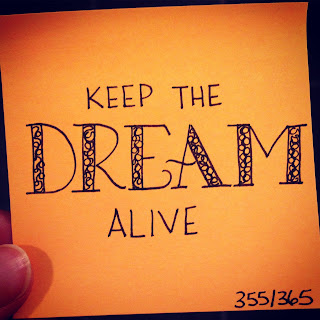 KEEP THE
DREAM
ALIVE
355/365